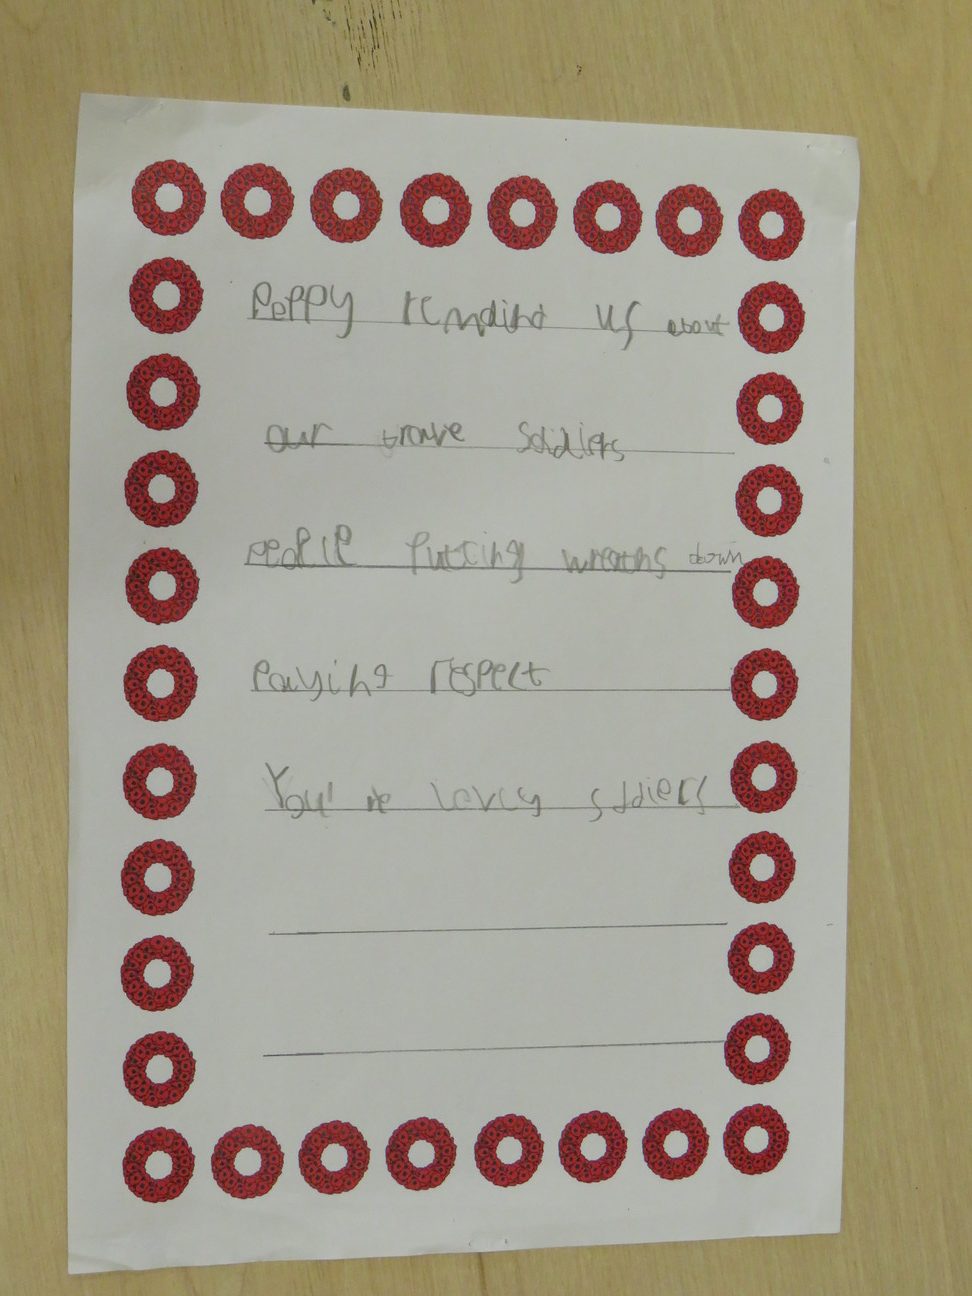 Peppy reminding us about
our brave Soldiers
people putting wreaths down
Paying respect
You're lovely soldiers